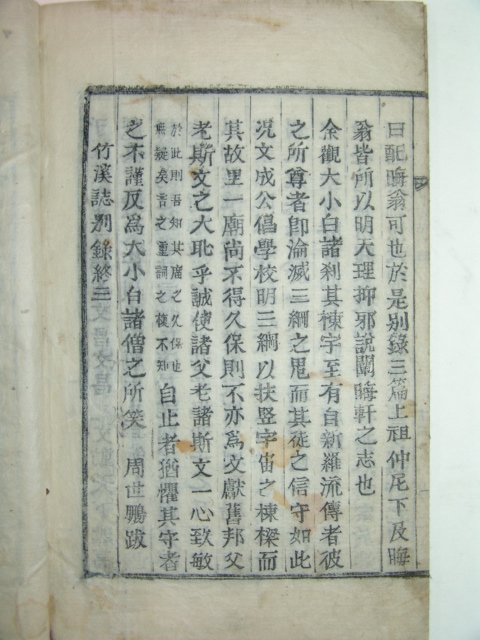 曰配晦翁可也於是別錄三篇上祖仲尼下及晦
翁皆所以明天理抑邪說闡晦軒之志也
余觀大小白諸刹其棟宇至有自新羅流傳者彼
之所尊者卽淪滅三綱之鬼而其徒之信守如此
况文成公倡學校明三綱以扶竪宇宙之棟樑而
其故里一廟尙不得久保則不亦爲文獻舊邦父
老斯文之大恥乎誠使諸父老諸斯文一心致敬
於此則吾知其廟之久保也
無疑矣言之重詞之複不知
自止者猶懼其守者
之不謹反爲大小白諸僧之所笑 周世鵬跋
竹溪誌別錄終三